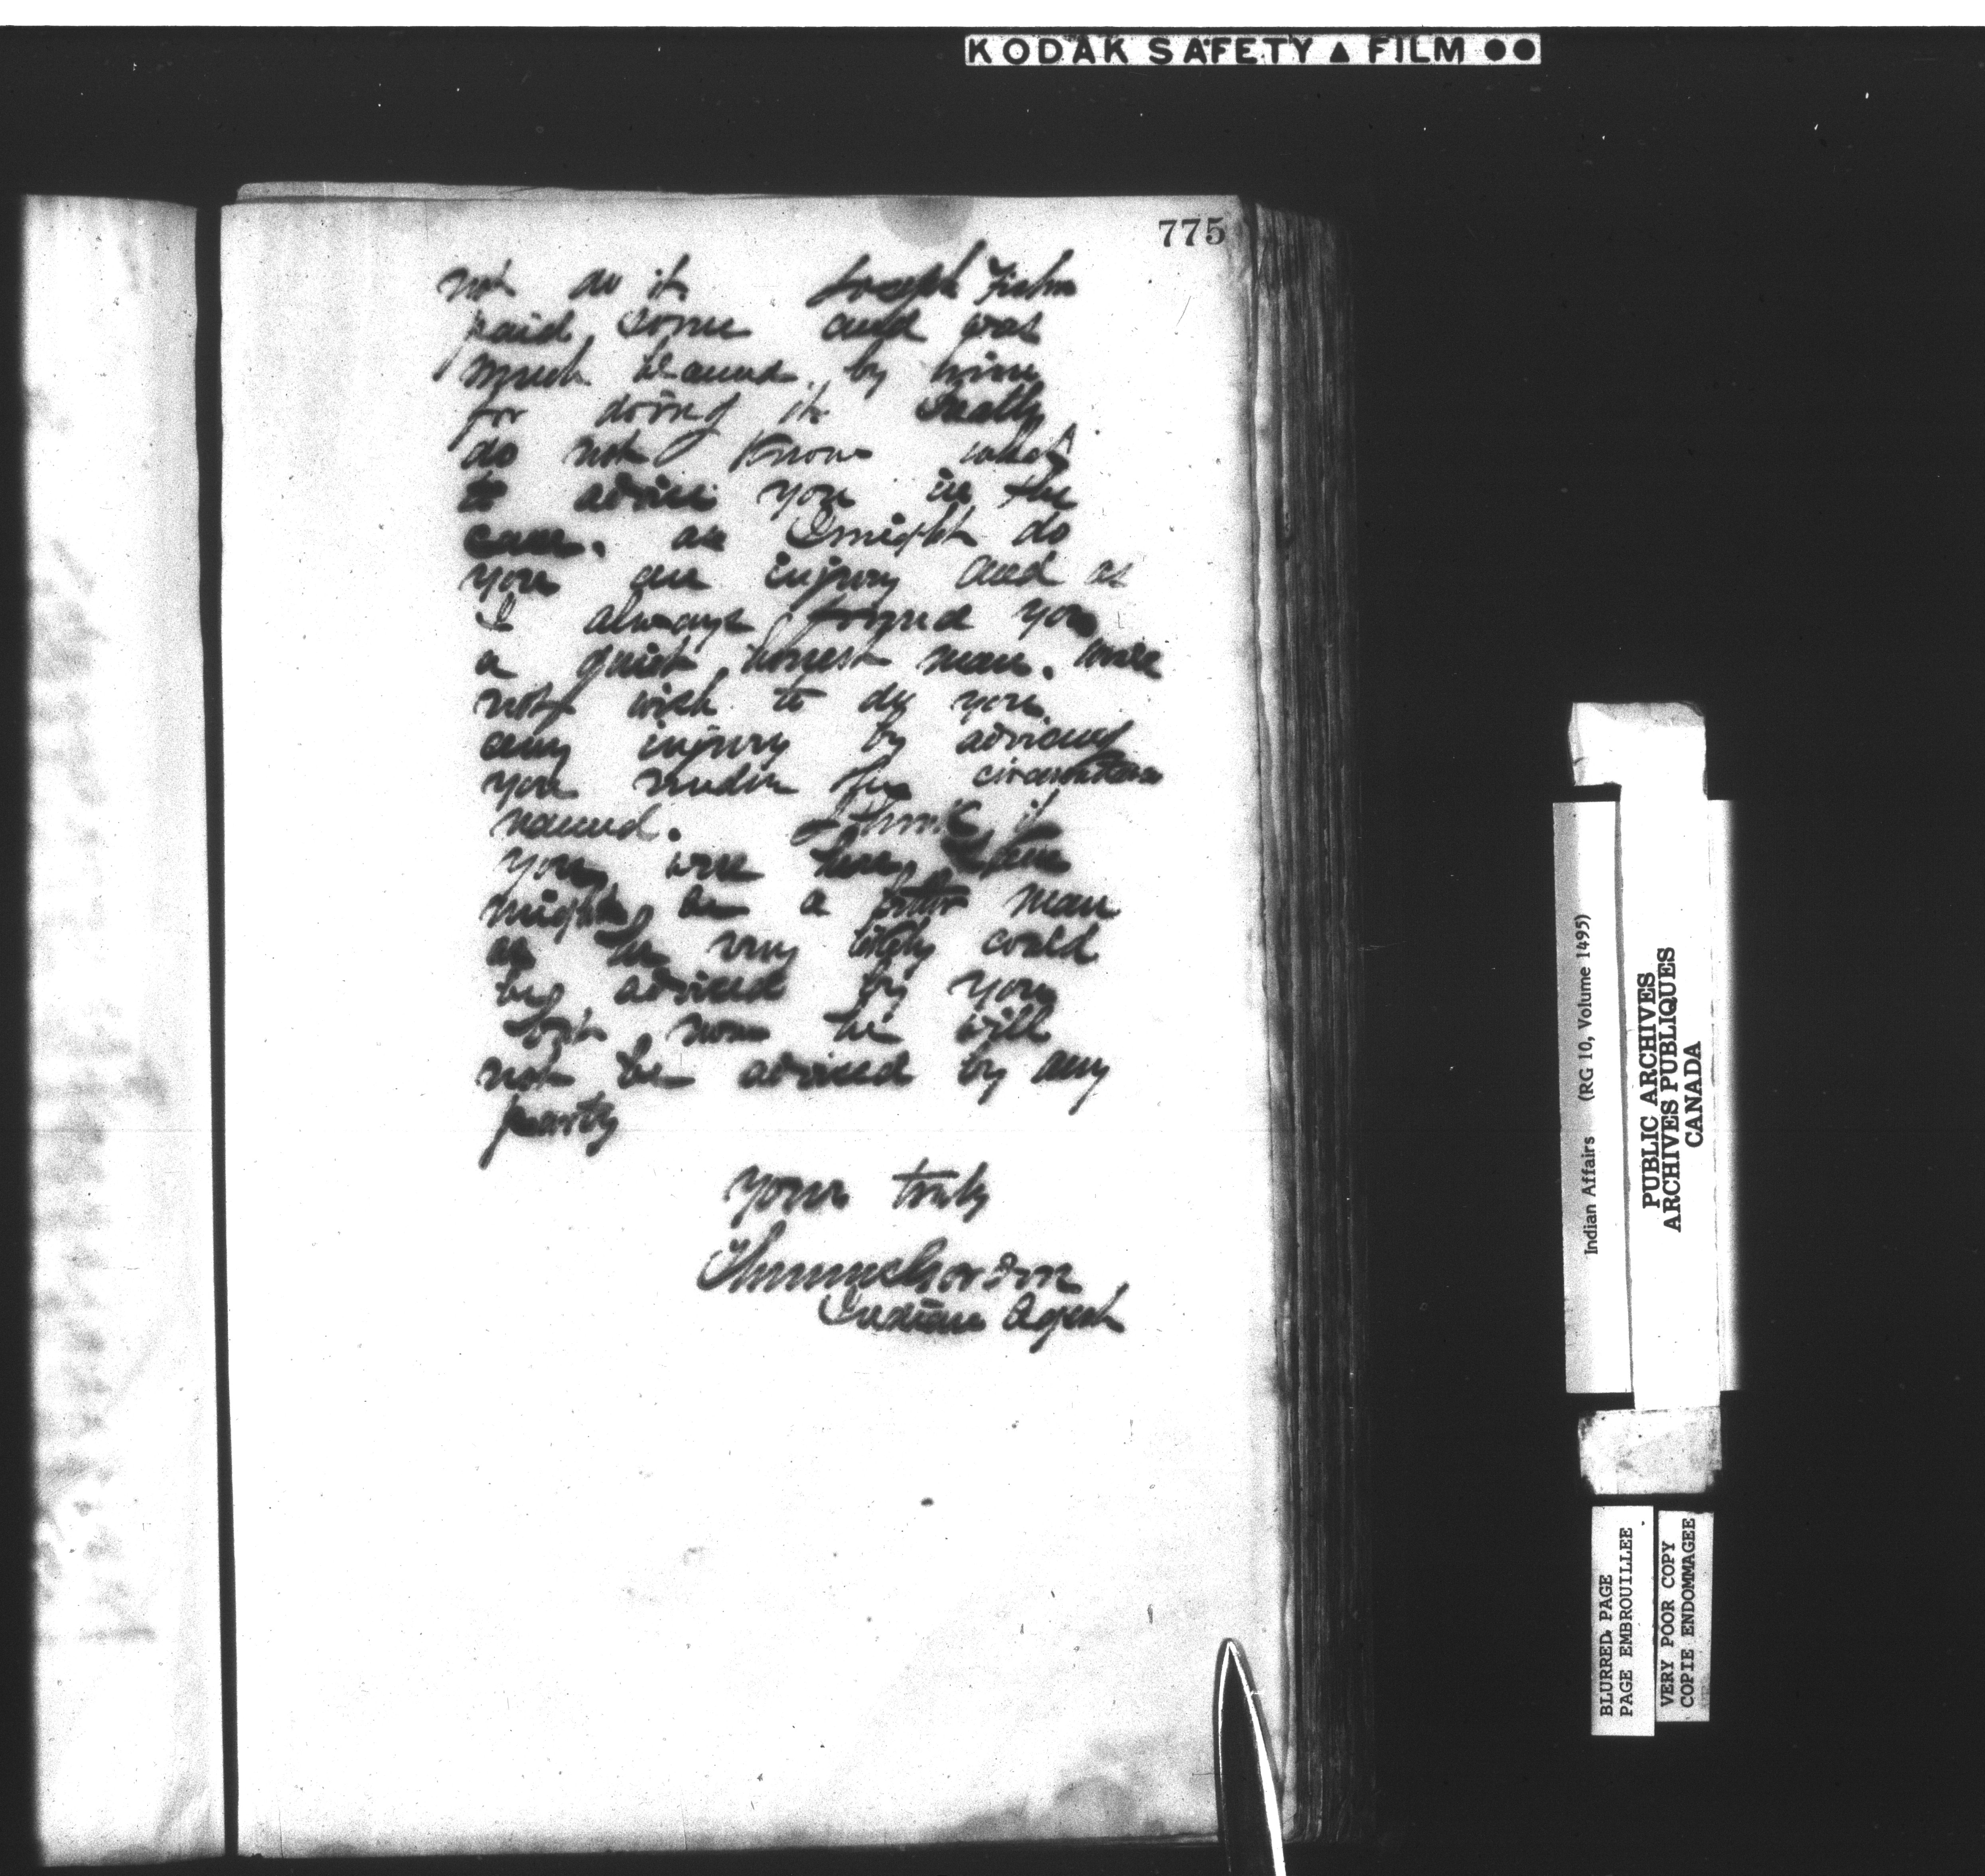 KODAK SAFETY ▲ FILM ●●
775
not do it Joseph Fisher
paid some and was
much blamed by him
for doing it I really
do not know what
to advise you in the
case. as I might do
you an injury and as
I always found you
a quiet honest man. will
not wish to do you
any injury by advising
you under the circumstances
named. I think if
you were here
might be a better man
as he very likely could
be advised by you
but now he will
not be advised by any
party
Yours truly
Thomas Gordon
Indian Agent
Indian Affairs (RG 10, Volume 1495)
PUBLIC ARCHIVES
ARCHIVES PUBLIQUES
CANADA
BLURRED PAGE
PAGE EMBROUILLEE
VERY POOR COPY
COPIE ENDOMMAGEE